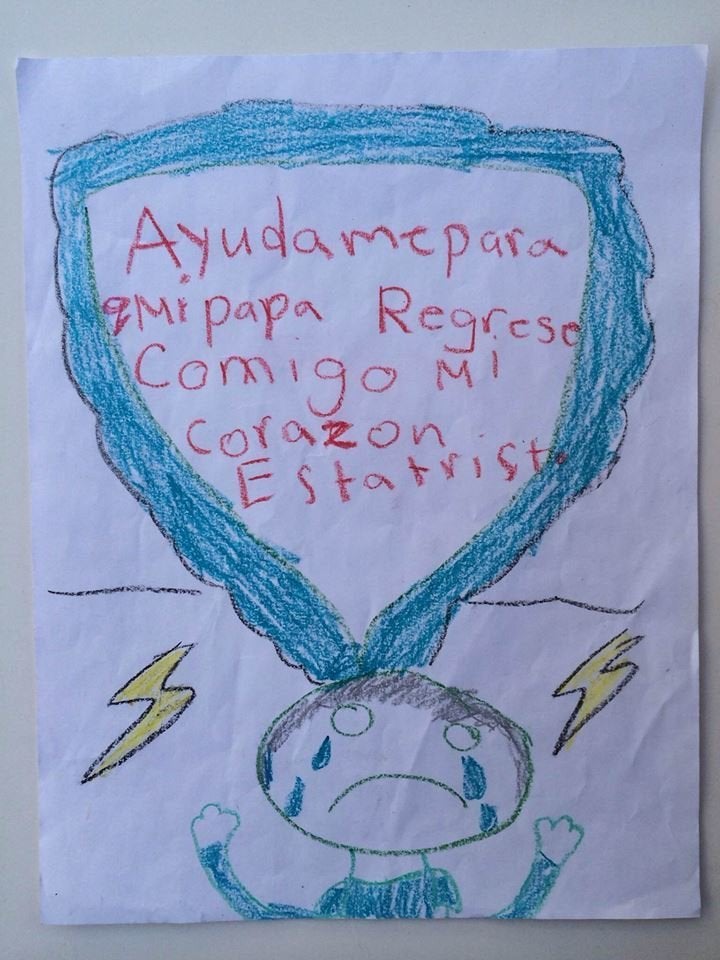 Ayudame para
q Mi papa Regrese
Comigo Mi
corazon
Esta trist